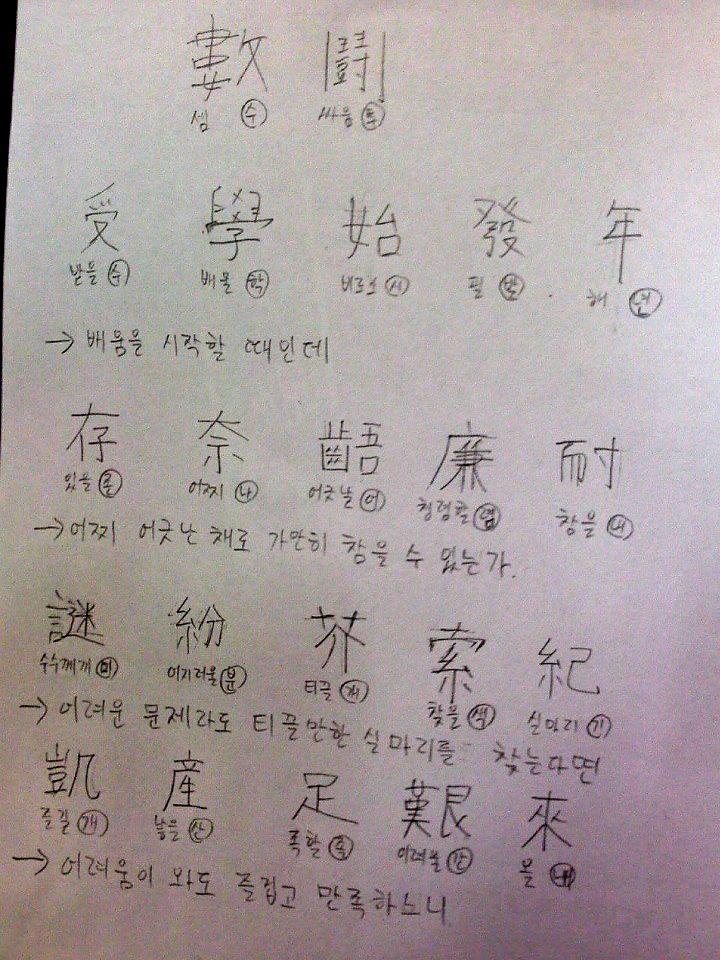 數 鬪
셈 수 싸움 투
受 學 始 發 年
받을 수 배울 학 비로소 시 필 발 . 해 년
→ 배움을 시작할 때인데
存 奈 齬 廉 耐
있을 존 어찌 나 어긋날 어 청렴할 렴 참을 내
→ 어찌 어긋난 채로 가만히 참을 수 있는가.
謎 紛 芥 索 紀
수수께끼 미 어지러울 분 티끌 개 찾을 색 실마리 기
→ 어려운 문제라도 티끌만한 실마리를 찾는다면
凱 産 足 艱 來
즐길 개 낳을 산 족할 족 어려울 간 올 내
→ 어려움이 와도 즐겁고 만족하노니